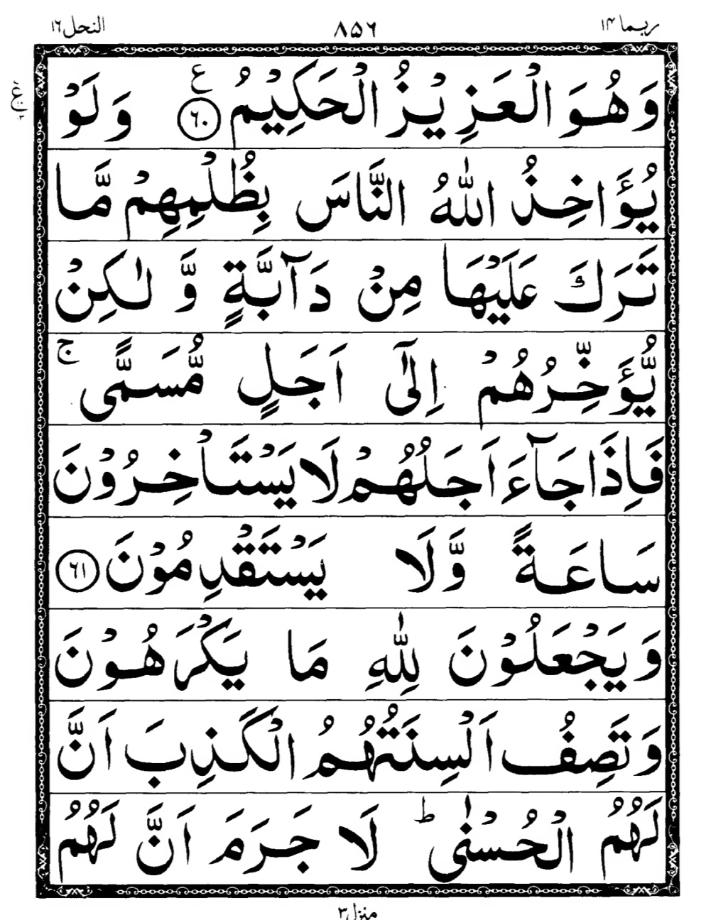 ربما ١٤ ٨٥٦ النحل ١٦
وَهُوَ الْعَزِيْزُ الْحَكِيْمُ ﴿٦٠﴾ ع وَلَوْ
يُؤَاخِذُ اللّٰهُ النَّاسَ بِظُلْمِهِمْ مَّا
تَرَكَ عَلَيْهَا مِنْ دَآبَّةٍ وَّ لٰكِنْ
يُّؤَخِّرُهُمْ اِلٰٓى اَجَلٍ مُّسَمًّى ۚ
فَاِذَا جَآءَ اَجَلُهُمْ لَا يَسْتَاْخِرُوْنَ
سَاعَةً وَّلَا يَسْتَقْدِمُوْنَ ﴿٦١﴾
وَيَجْعَلُوْنَ لِلّٰهِ مَا يَكْرَهُوْنَ
وَتَصِفُ اَلْسِنَتُهُمُ الْكَذِبَ اَنَّ
لَهُمُ الْحُسْنٰى ؕ لَا جَرَمَ اَنَّ لَهُمُ
منزل ٣